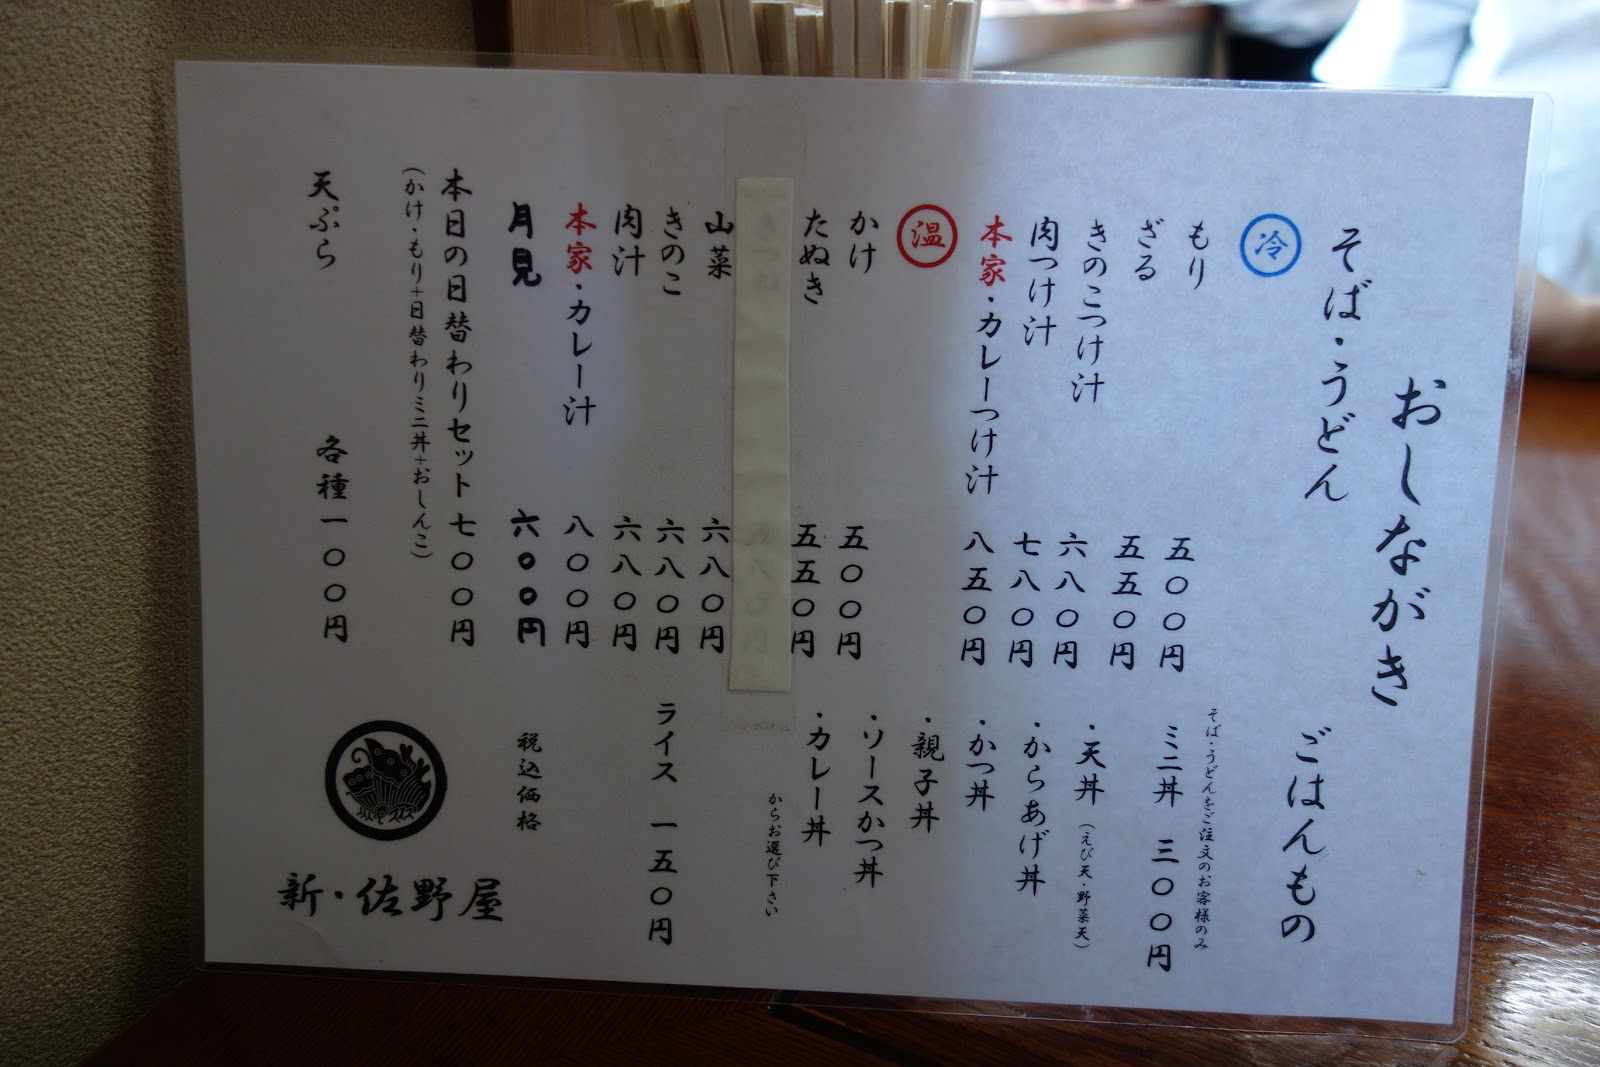 おしながき
そば・うどん
冷
もり 五〇〇円
ざる 五五〇円
きのこつけ汁 六八〇円
肉つけ汁 七八〇円
本家・カレーつけ汁 八五〇円
温
かけ 五〇〇円
たぬき 五五〇円
山菜 六八〇円
きのこ 六八〇円
肉汁 六八〇円
本家・カレー汁 八〇〇円
月見 六〇〇円
本日の日替わりセット 七〇〇円
(かけ・もり+日替わりミニ丼+おしんこ)
天ぷら 各種一〇〇円
ごはんもの
そば・うどんをご注文のお客様のみ
ミニ丼 三〇〇円
・天丼 (えび天・野菜天)
・からあげ丼
・かつ丼
・親子丼
・ソースかつ丼
・カレー丼
からお選び下さい
ライス 一五〇円
税込価格
新・佐野屋